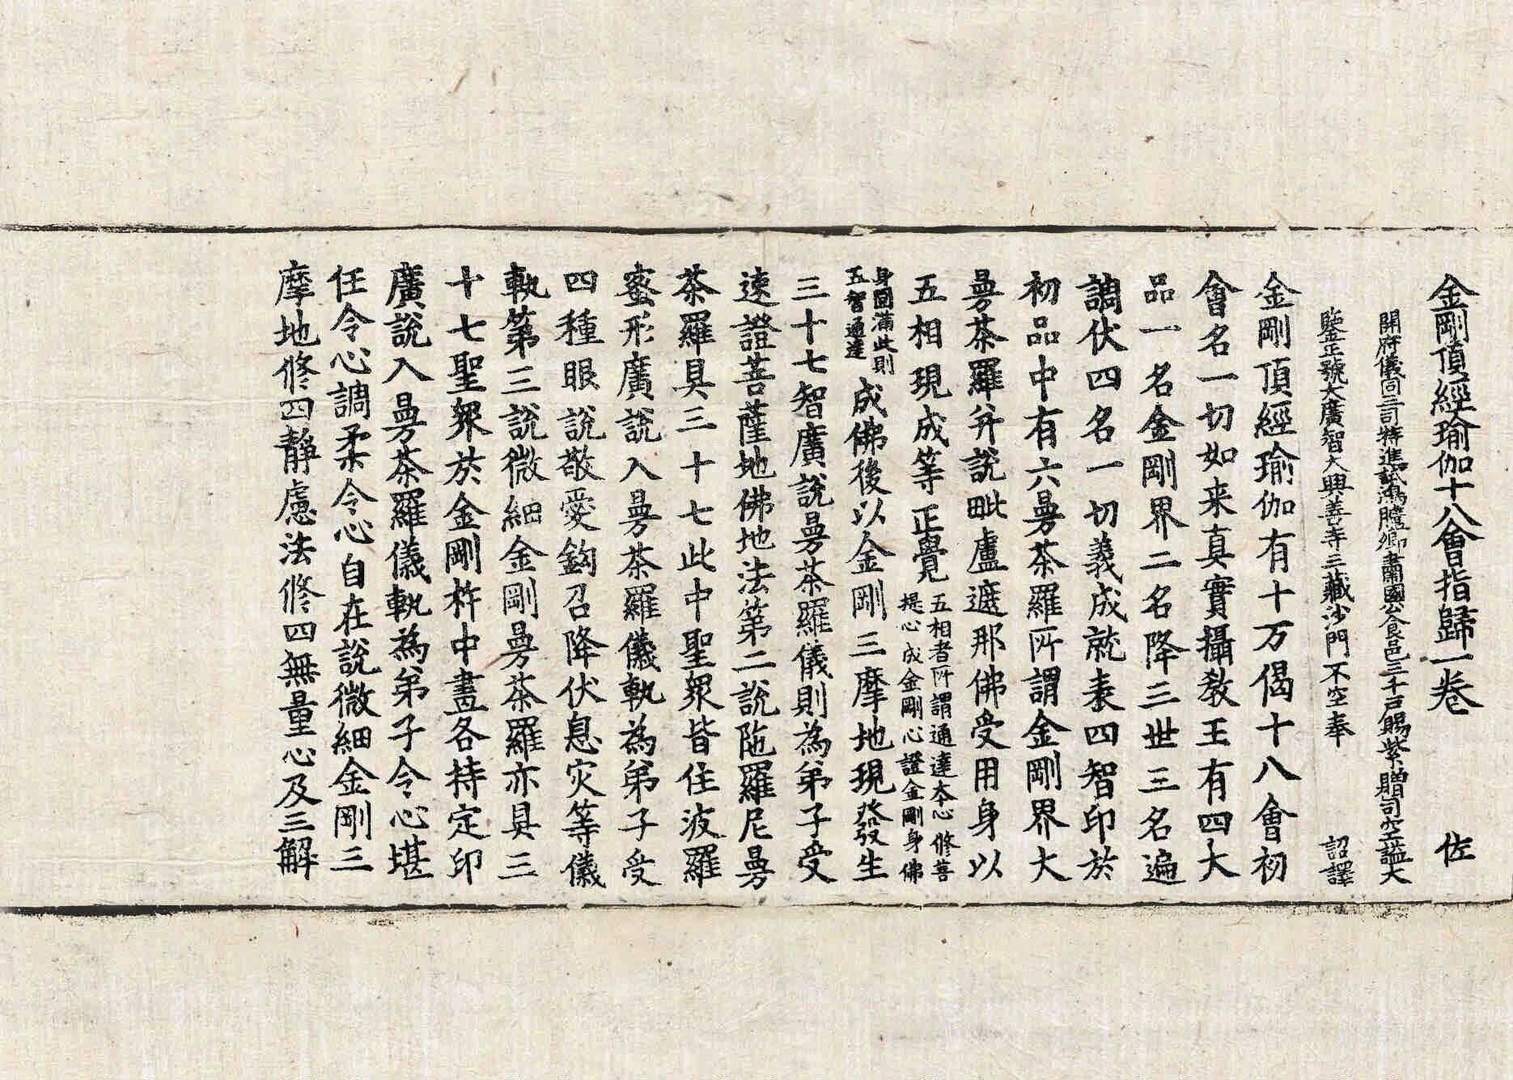 金剛頂經瑜伽十八會指歸一卷 佐
開府儀同三司特進試鴻臚卿肅國公食邑三千戶賜紫贈司空謚大
鑒正號大廣智大興善寺三藏沙門不空奉 詔譯
金剛頂經瑜伽有十万偈十八會初
會名一切如来真實攝教王有四大
品一名金剛界二名降三世三名遍
調伏四名一切義成就表四智印於
初品中有六曼荼羅所謂金剛界大
曼荼羅并說毗盧遮那佛受用身以
五相現成等正覺五相者所謂通達本心修菩
提心成金剛心證金剛身佛
身圓滿此則
五智通達成佛後以金剛三摩地現發生
三十七智廣說曼荼羅儀則為弟子受
速證菩薩地佛地法第二說陁羅尼曼
荼羅具三十七此中聖衆皆住波羅
蜜形廣說入曼荼羅儀軌為弟子受
四種眼說敬愛鈎召降伏息灾等儀
軌第三說微細金剛曼荼羅亦具三
十七聖衆於金剛杵中畫各持定印
廣說入曼荼羅儀軌為弟子令心堪
任令心調柔令心自在說微細金剛三
摩地修四靜慮法修四無量心及三解